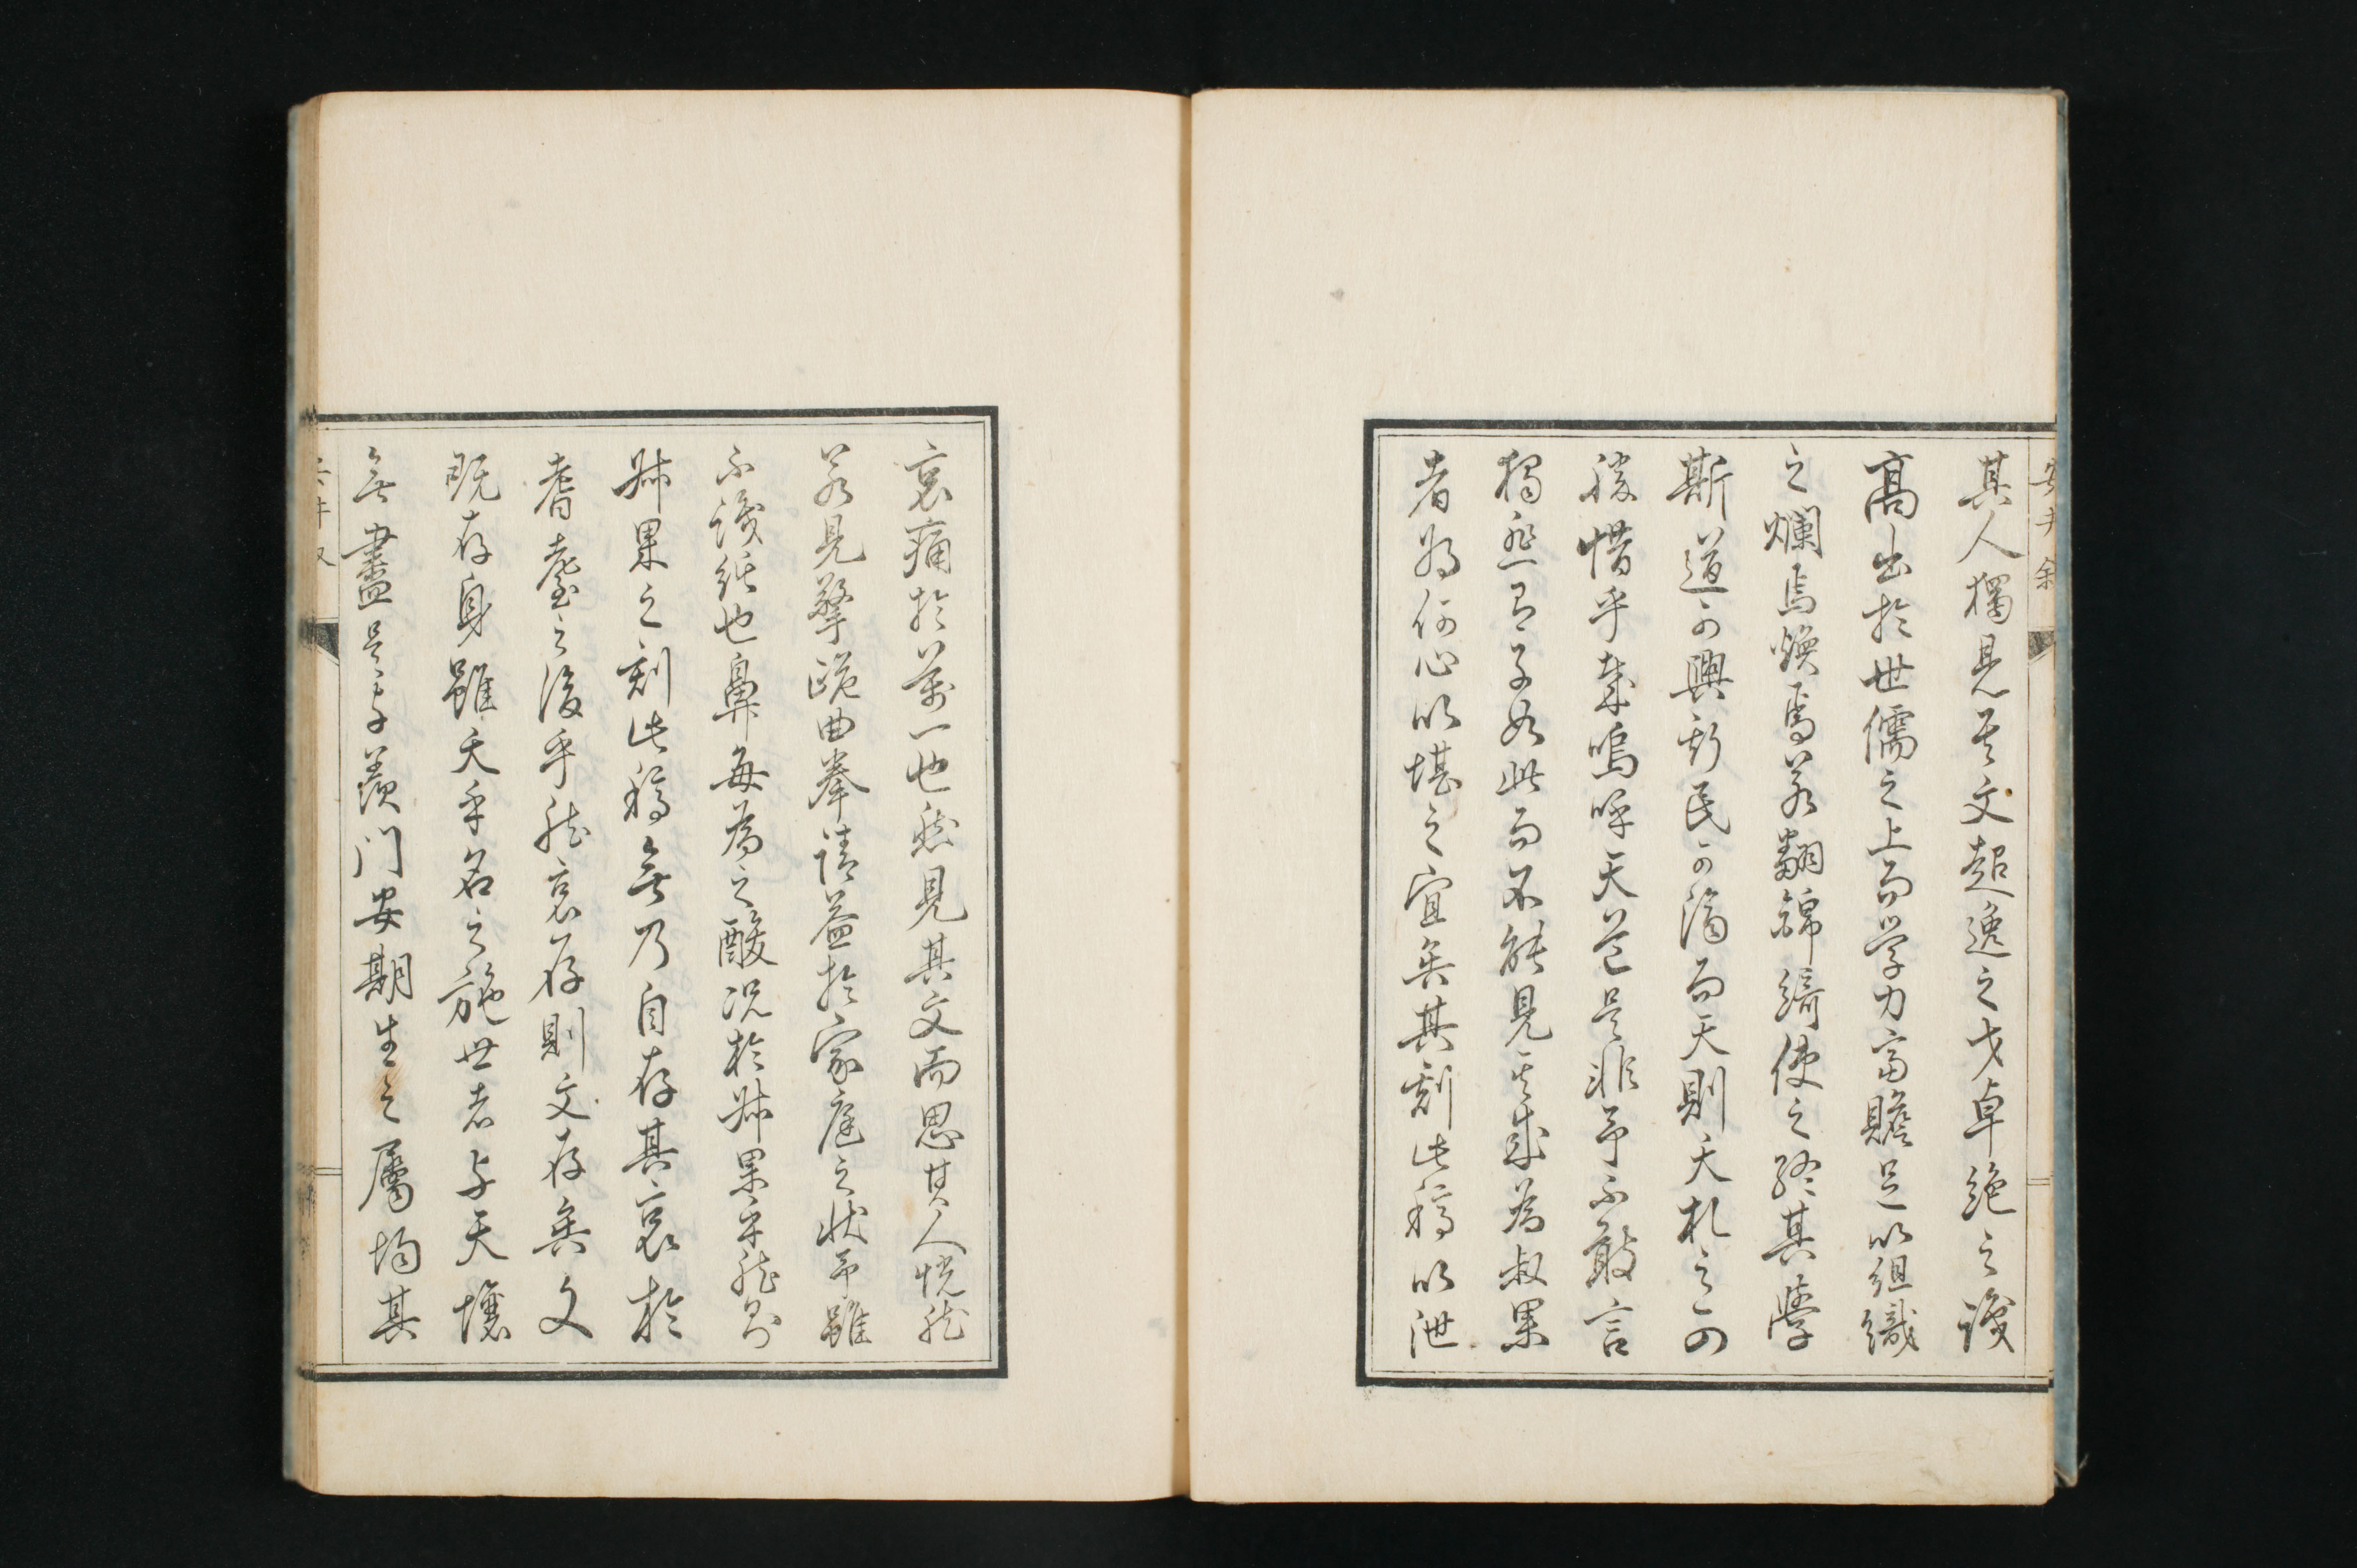 其人獨見其文超逸之才卓絶之識
高出於世儒之上而学力富贍足以組織
之爛焉煥焉若翻錦綺使之終其學
斯道可興斯民可済而天則夭札之可
勝惜乎哉嗚呼天道是非予不敢言
獨悲有子如此而不能見其成為叔果
者為何心以堪之宜矣其刻此稿以泄
哀痛於萬一也然見其文而思其人恍然
若見擎跽曲拳請益於家庭之状予雖
不識紙也鼻每為之酸况於叔果乎然則
叔果之刻此稿無乃自存其哀於
耆耋之後乎然哀存則文存矣文
既存身雖夭乎名之施世者与天壤
無盡是子羨門安期生之屬均其